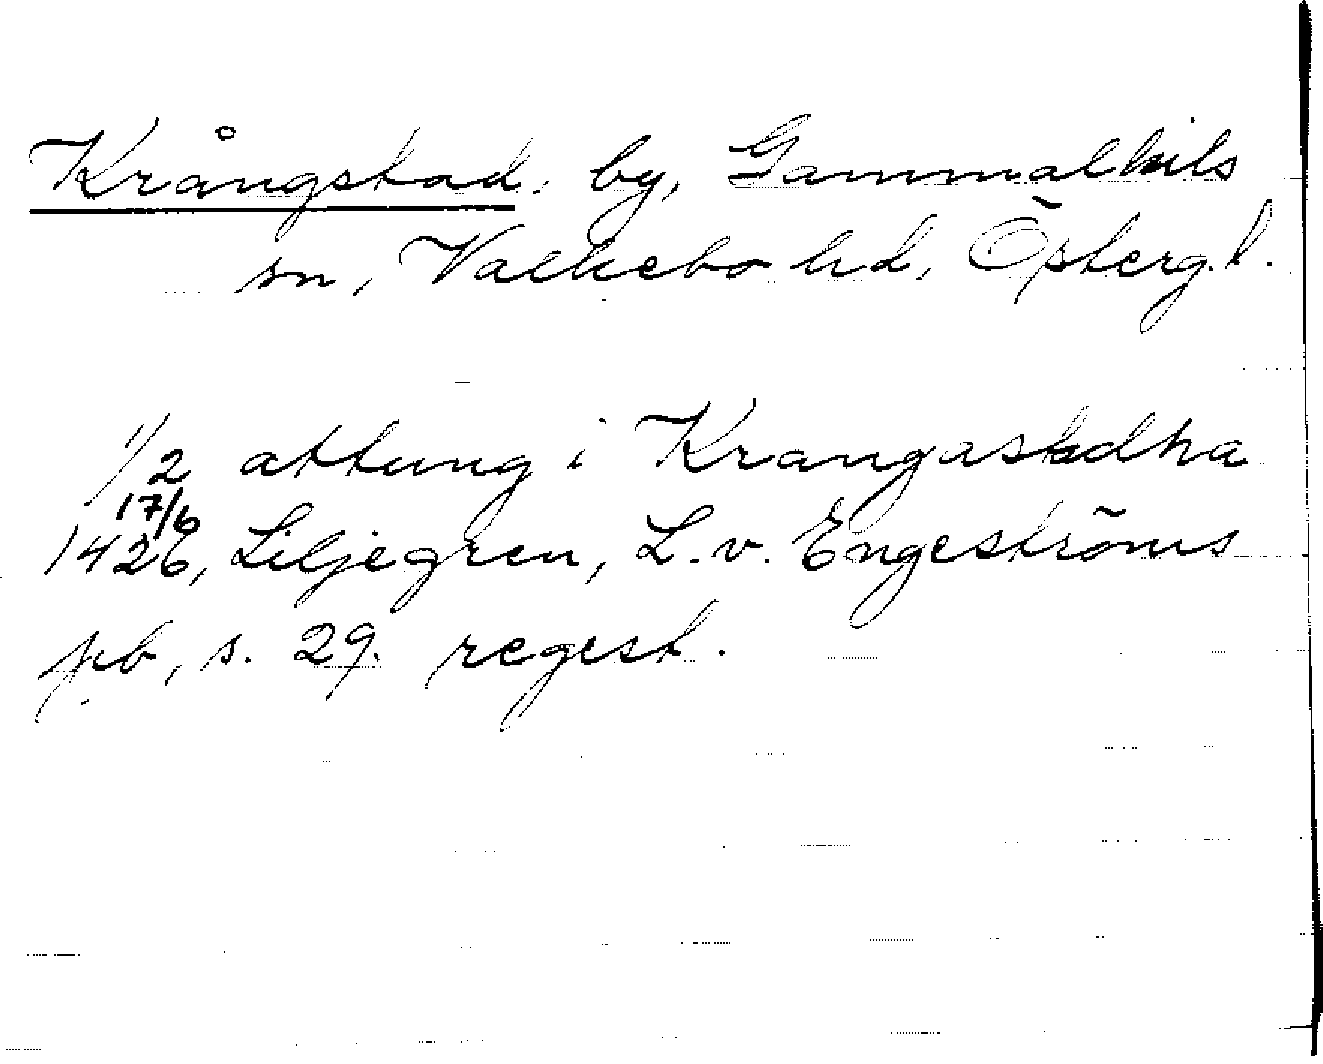 Krångstad, by, Gammalkils
sn, Valkebo hd, Östergl.
1/2 attung i Krangastadha
17/6
1426, Liljegren, L. v. Engeströms
pb, s. 29. regest.